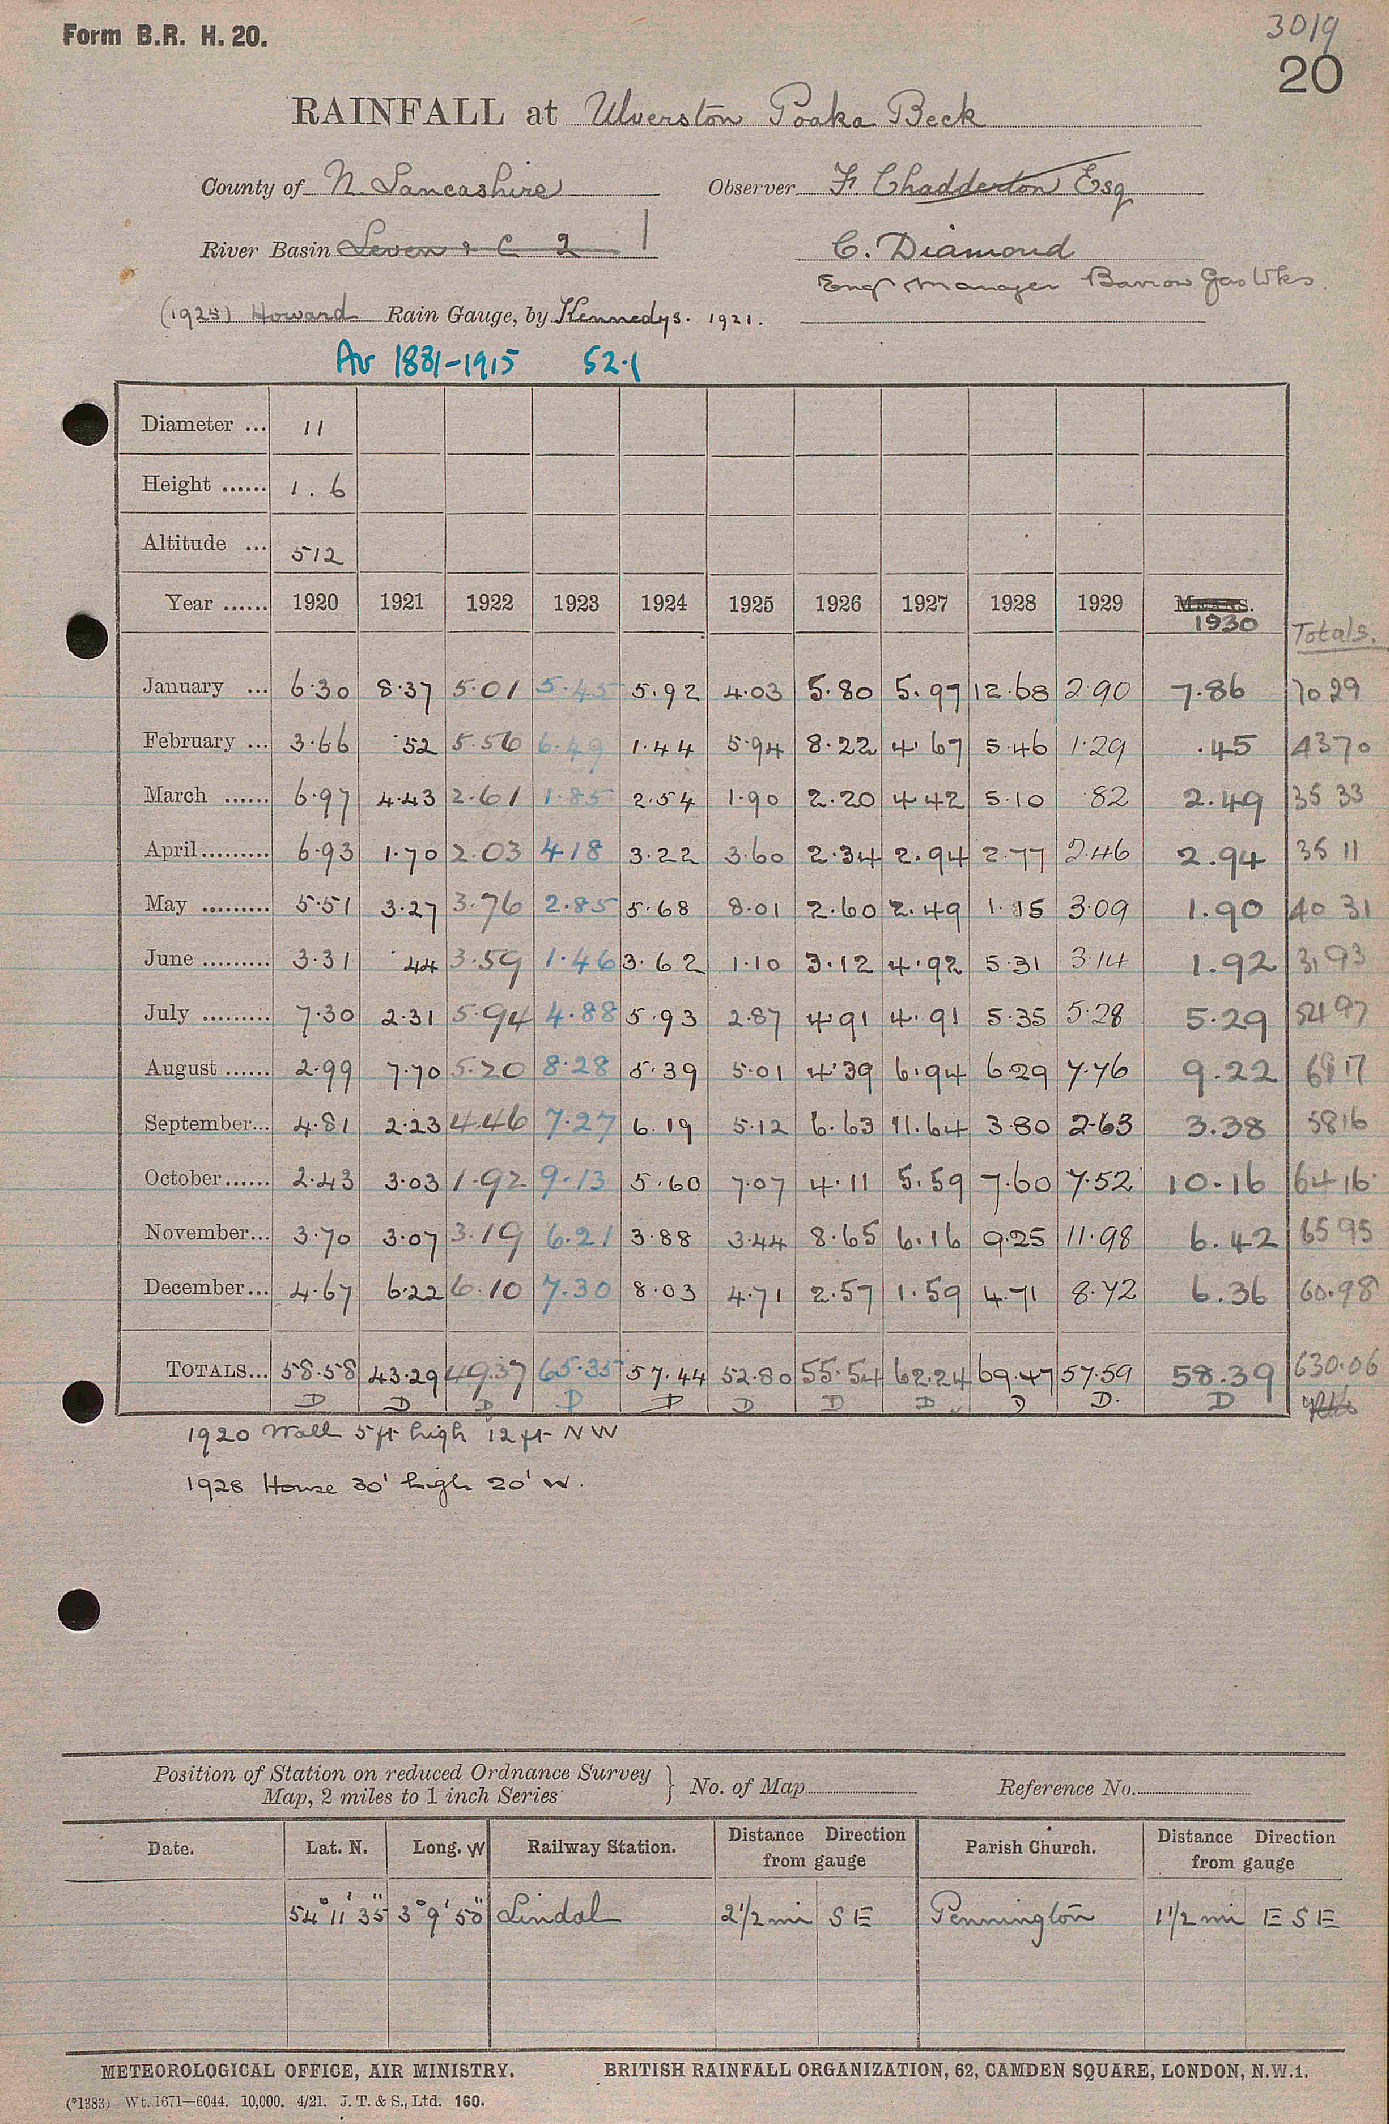 Form B.R. H. 20.
3019
20
RAINFALL at Ulverston Poaka Beck
County of N. Lancashire Observer F. Chadderton Esq
River Basin Leven & C 2 1 C. Diamond
Engr Manager Barrow Gas Wks.
(1925) Howard Rain Gauge, by Kennedys. 1921.
Av 1881-1915 52.1
Diameter ... 11
Height ...... 1.6
Altitude ... 512
Year ...... 1920 1921 1922 1923 1924 1925 1926 1927 1928 1929 MEANS. 1930 Totals.
January ... 6.30 8.37 5.01 5.45 5.92 4.03 5.80 5.97 12.68 2.90 7.86 70 29
February ... 3.66 .52 5.56 6.49 1.44 5.94 8.22 4.67 5.46 1.29 .45 43 70
March ...... 6.97 4.43 2.61 1.85 2.54 1.90 2.20 4.42 5.10 .82 2.49 35 33
April ......... 6.93 1.70 2.03 4.18 3.22 3.60 2.34 2.94 2.77 2.46 2.94 35 11
May ......... 5.51 3.27 3.76 2.85 5.68 8.01 2.60 2.49 1.15 3.09 1.90 40 31
June ......... 3.31 .44 3.59 1.46 3.62 1.10 3.12 4.92 5.31 3.14 1.92 31 93
July ......... 7.30 2.31 5.94 4.88 5.93 2.87 4.91 4.91 5.35 5.28 5.29 54 97
August ...... 2.99 7.70 5.20 8.28 5.39 5.01 4.39 6.94 6.29 7.76 9.22 69 17
September... 4.81 2.23 4.46 7.27 6.19 5.12 6.63 11.64 3.80 2.63 3.38 58 16
October...... 2.43 3.03 1.92 9.13 5.60 7.07 4.11 5.59 7.60 7.52 10.16 64 16
November... 3.70 3.07 3.19 6.21 3.88 3.44 8.65 6.16 9.25 11.98 6.42 65 95
December... 4.67 6.22 6.10 7.30 8.03 4.71 2.57 1.59 4.71 8.72 6.36 60.98
TOTALS... 58.58 43.29 49.37 65.35 57.44 52.80 55.54 62.24 69.47 57.59 58.39 630.06
D D D D D D D D D D. D
1920 Wall 5 ft high 12 ft NW
1928 House 30' high 20' W.
Position of Station on reduced Ordnance Survey
Map, 2 miles to 1 inch Series } No. of Map Reference No.
Date. Lat. N. Long. W Railway Station. Distance Direction from gauge Parish Church. Distance Direction from gauge
54° 11' 35" 3° 9' 50" Lindal 2½ mi S E Pennington 1½ mi E S E
METEOROLOGICAL OFFICE, AIR MINISTRY. BRITISH RAINFALL ORGANIZATION, 62, CAMDEN SQUARE, LONDON, N.W.1.
(*1383) Wt. 1671—6044. 10,000. 4/21. J. T. & S., Ltd. 160.